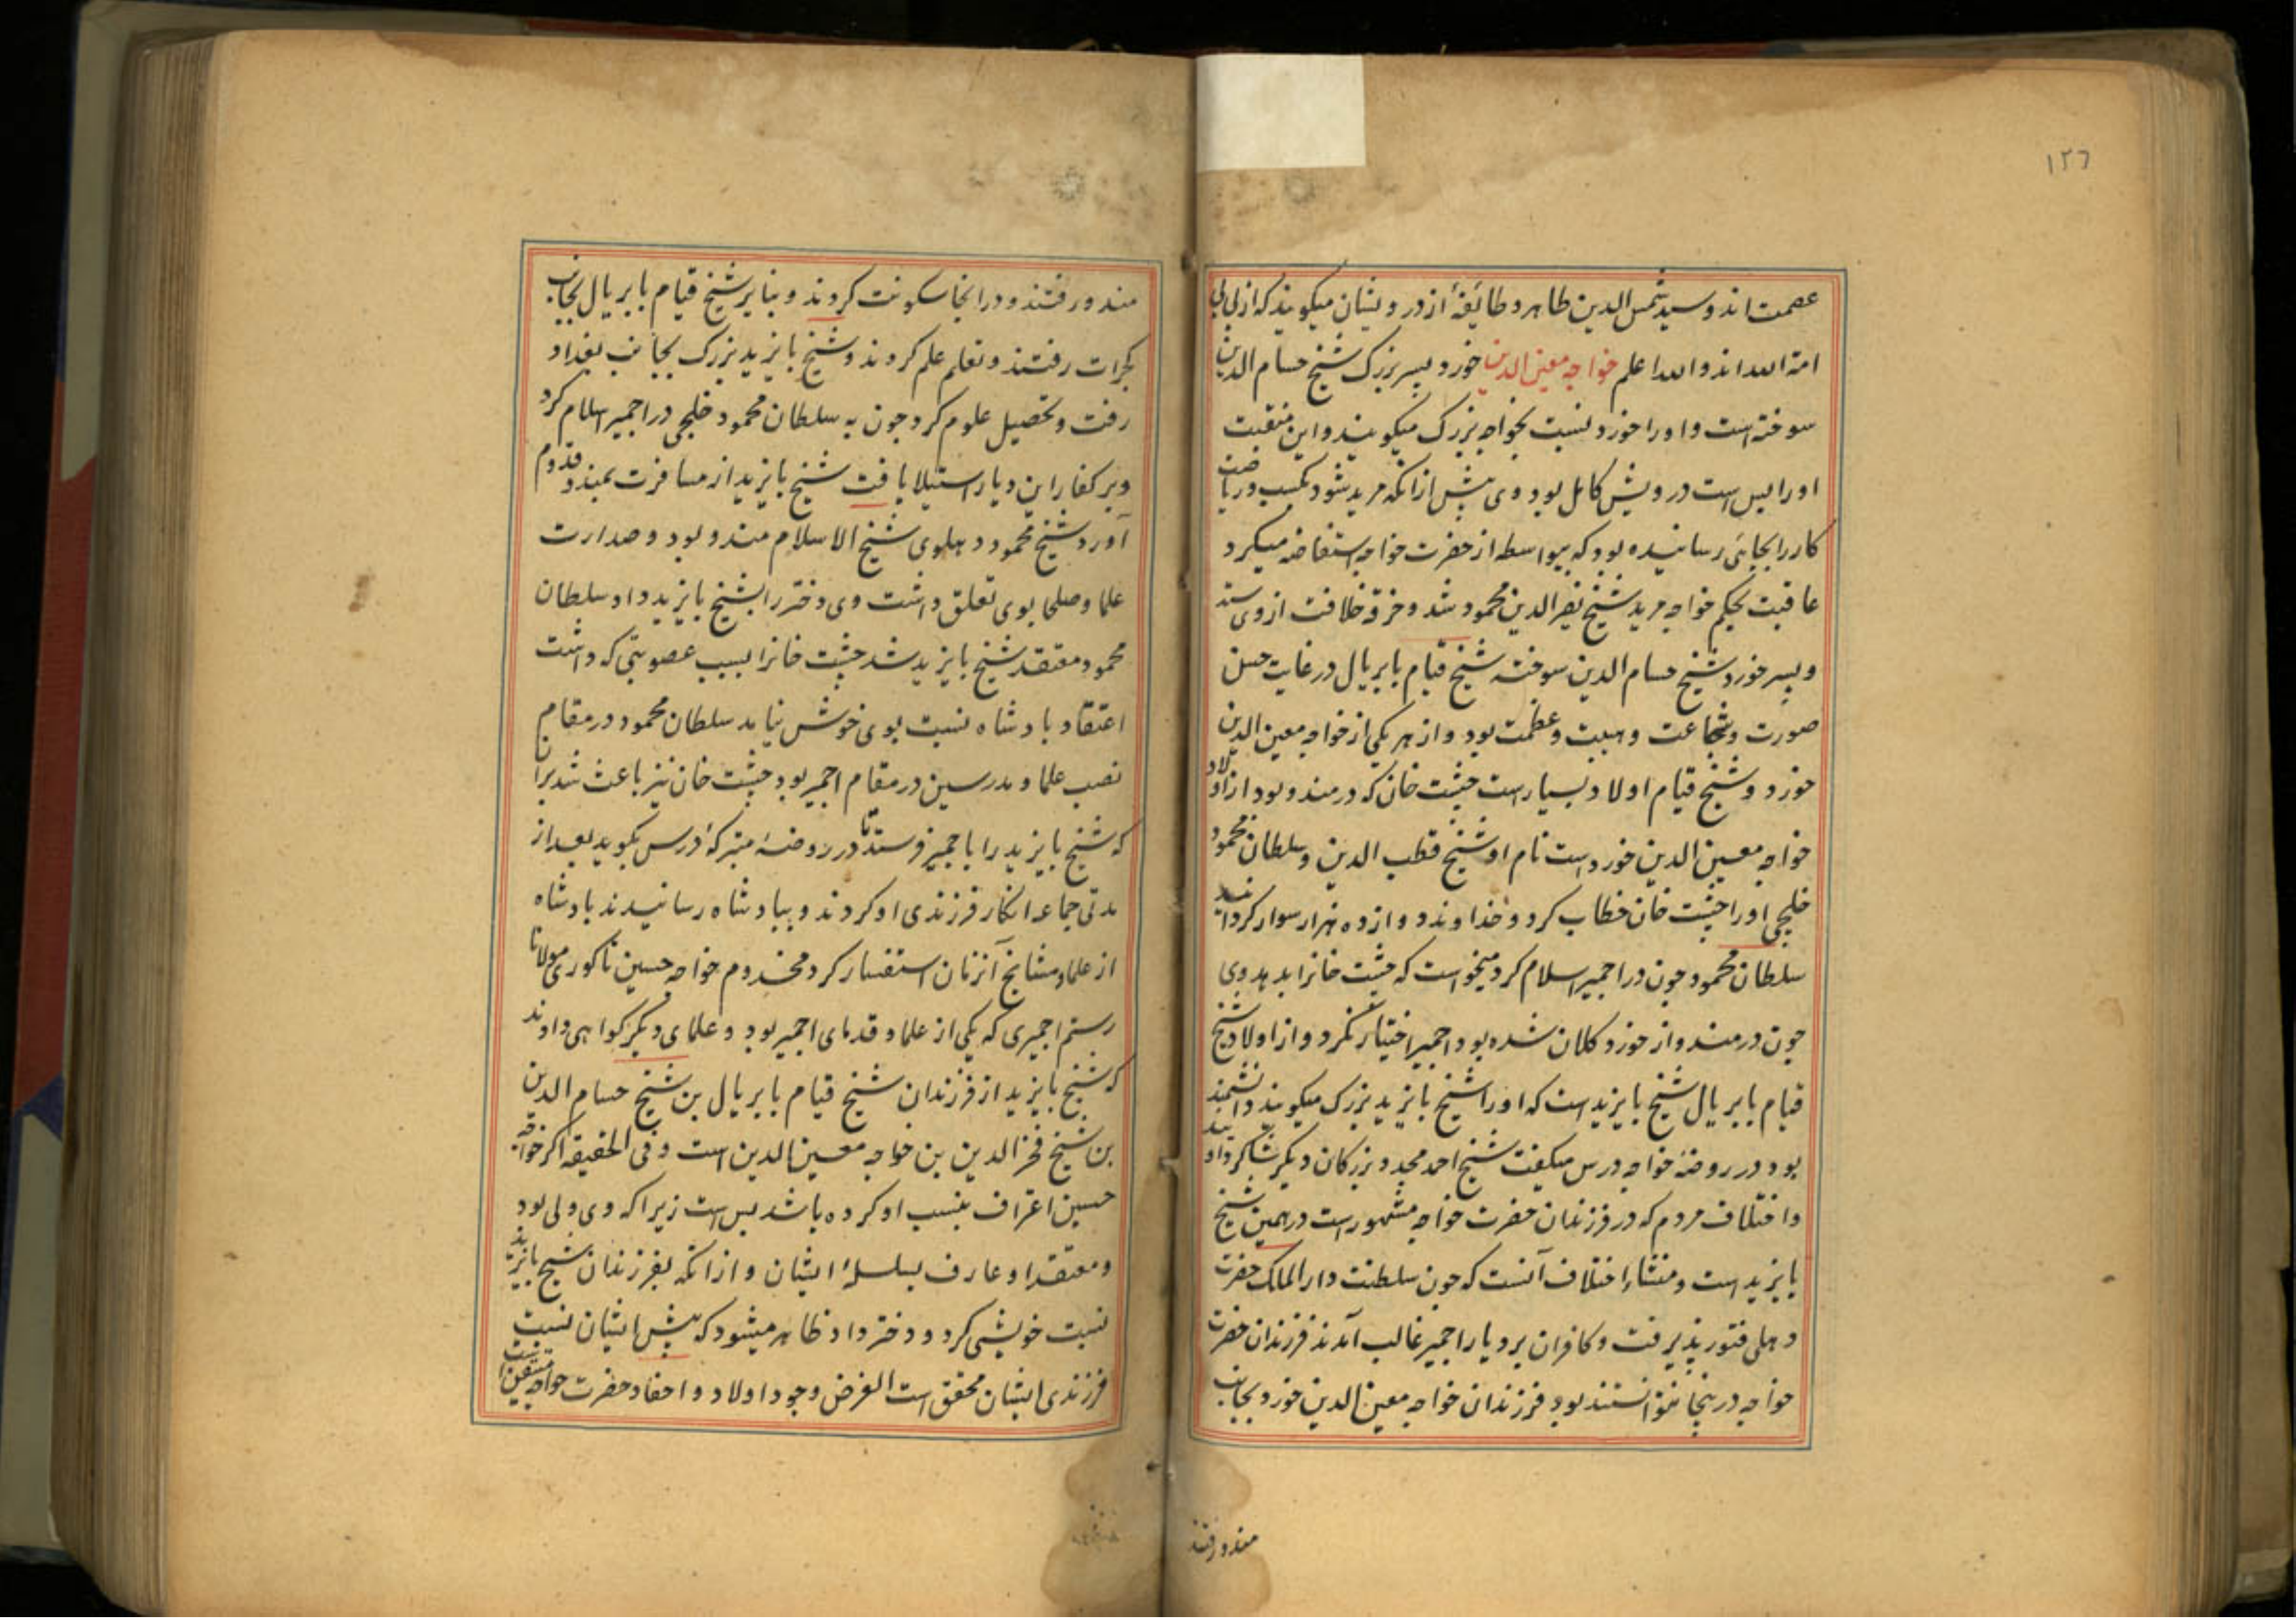 ١٢٦
عصمت اند و سید شمس الدین طاهر و طائفهٔ از درویشان میکویند که از بی بی
امة الله اند والله اعلم خواجه معین الدین خورد پسر بزرک شیخ حسام الدین
سوخته است و او را خورد نسبت بخواجه بزرک میکویند و این منقبت
او را بس است درویش کامل بود وی پیش از انکه مرید شود بکسب و ریاضت
کار را بجائی رسانیده بود که بیواسطه از حضرت خواجه استفاضه میکرد
عاقبت بحکم خواجه مرید شیخ نصر الدین محمود شد و خرقه خلافت از وی ستد
و پسر خورد شیخ حسام الدین سوخته شیخ قیام بابریال در غایت حسن
صورت و شجاعت و هیبت و عظمت بود و از هر یکی از خواجه معین الدین
خورد و شیخ قیام اولاد بسیار است چشت خان که در مندو بود از اولاد
خواجه معین الدین خورد است نام او شیخ قطب الدین و سلطان محمود
خلجی او را چشت خان خطاب کرد و خداوند دوازده هزار سوار کردانید
سلطان محمود چون در اجمیر اسلام کرد میخواست که چشت خانرا بدهد وی
چون در مندو از خورد کلان شده بود اجمیر اختیار نکرد و از اولاد شیخ
قیام بابریال شیخ بایزید است که او را شیخ بایزید بزرک میکویند دانشمند
بود در روضهٔ خواجه درس میکفت شیخ احمد مجد و بزرکان دیکر شاکرد او
و اختلاف مردم که در فرزندان حضرت خواجه مشهور است در همین شیخ
بایزید است و منشاء اختلاف آنست که چون سلطنت دار الملک حضرت
دهلی فتور پذیرفت و کافران بر دیار اجمیر غالب آمدند فرزندان حضرت
خواجه در ینجا نتوانستند بود فرزندان خواجه معین الدین خورد بجانب
مندو رفتند
مندو رفتند و در انجا سکونت کردند و بنایر شیخ قیام بابریال بجانب
کجرات رفتند و تعلم علم کردند و شیخ بایزید بزرک بجانب بغداد
رفت و تحصیل علوم کرد چون به سلطان محمود خلجی در اجمیر اسلام کرد
و بر کفار این دیار استیلا یافت شیخ بایزید از مسافرت بمندو قدوم
آورد شیخ محمود دهلوی شیخ الاسلام مندو بود و صدارت
علما و صلحا بوی تعلق داشت وی دختر را بشیخ بایزید داد سلطان
محمود معتقد شیخ بایزید شد چشت خانرا بسبب عصوبتی که داشت
اعتقاد بادشاه نسبت بوی خوش نیامد سلطان محمود در مقام
نصب علما و مدرسین در مقام اجمیر بود چشت خان نیز باعث شد بران
که شیخ بایزید را باجمیر فرستد تا در روضهٔ متبرکه درس بکوید بعد از
مدتی جماعه انکار فرزندی او کردند و ببادشاه رسانیدند بادشاه
از علما و مشایخ آنزمان استفسار کرد مخدوم خواجه حسین ناکوری مولانا
رستم اجمیری که یکی از علما و قدمای اجمیر بود و علمای دیکر کواهی دادند
که شیخ بایزید از فرزندان شیخ قیام بابریال بن شیخ حسام الدین
بن شیخ فخر الدین بن خواجه معین الدین است و فی الحقیقه اکر خواجه
حسین اعتراف بنسب او کرده باشد بس است زیرا که وی ولی بود
و معتقد او عارف بسلسلهٔ ایشان و از انکه بفرزندان شیخ بایزید
نسبت خویشی کرد و دختر داد ظاهر میشود که پیش ایشان نسبت
فرزندی ایشان محقق است الغرض وجود اولاد و احفاد حضرت خواجه